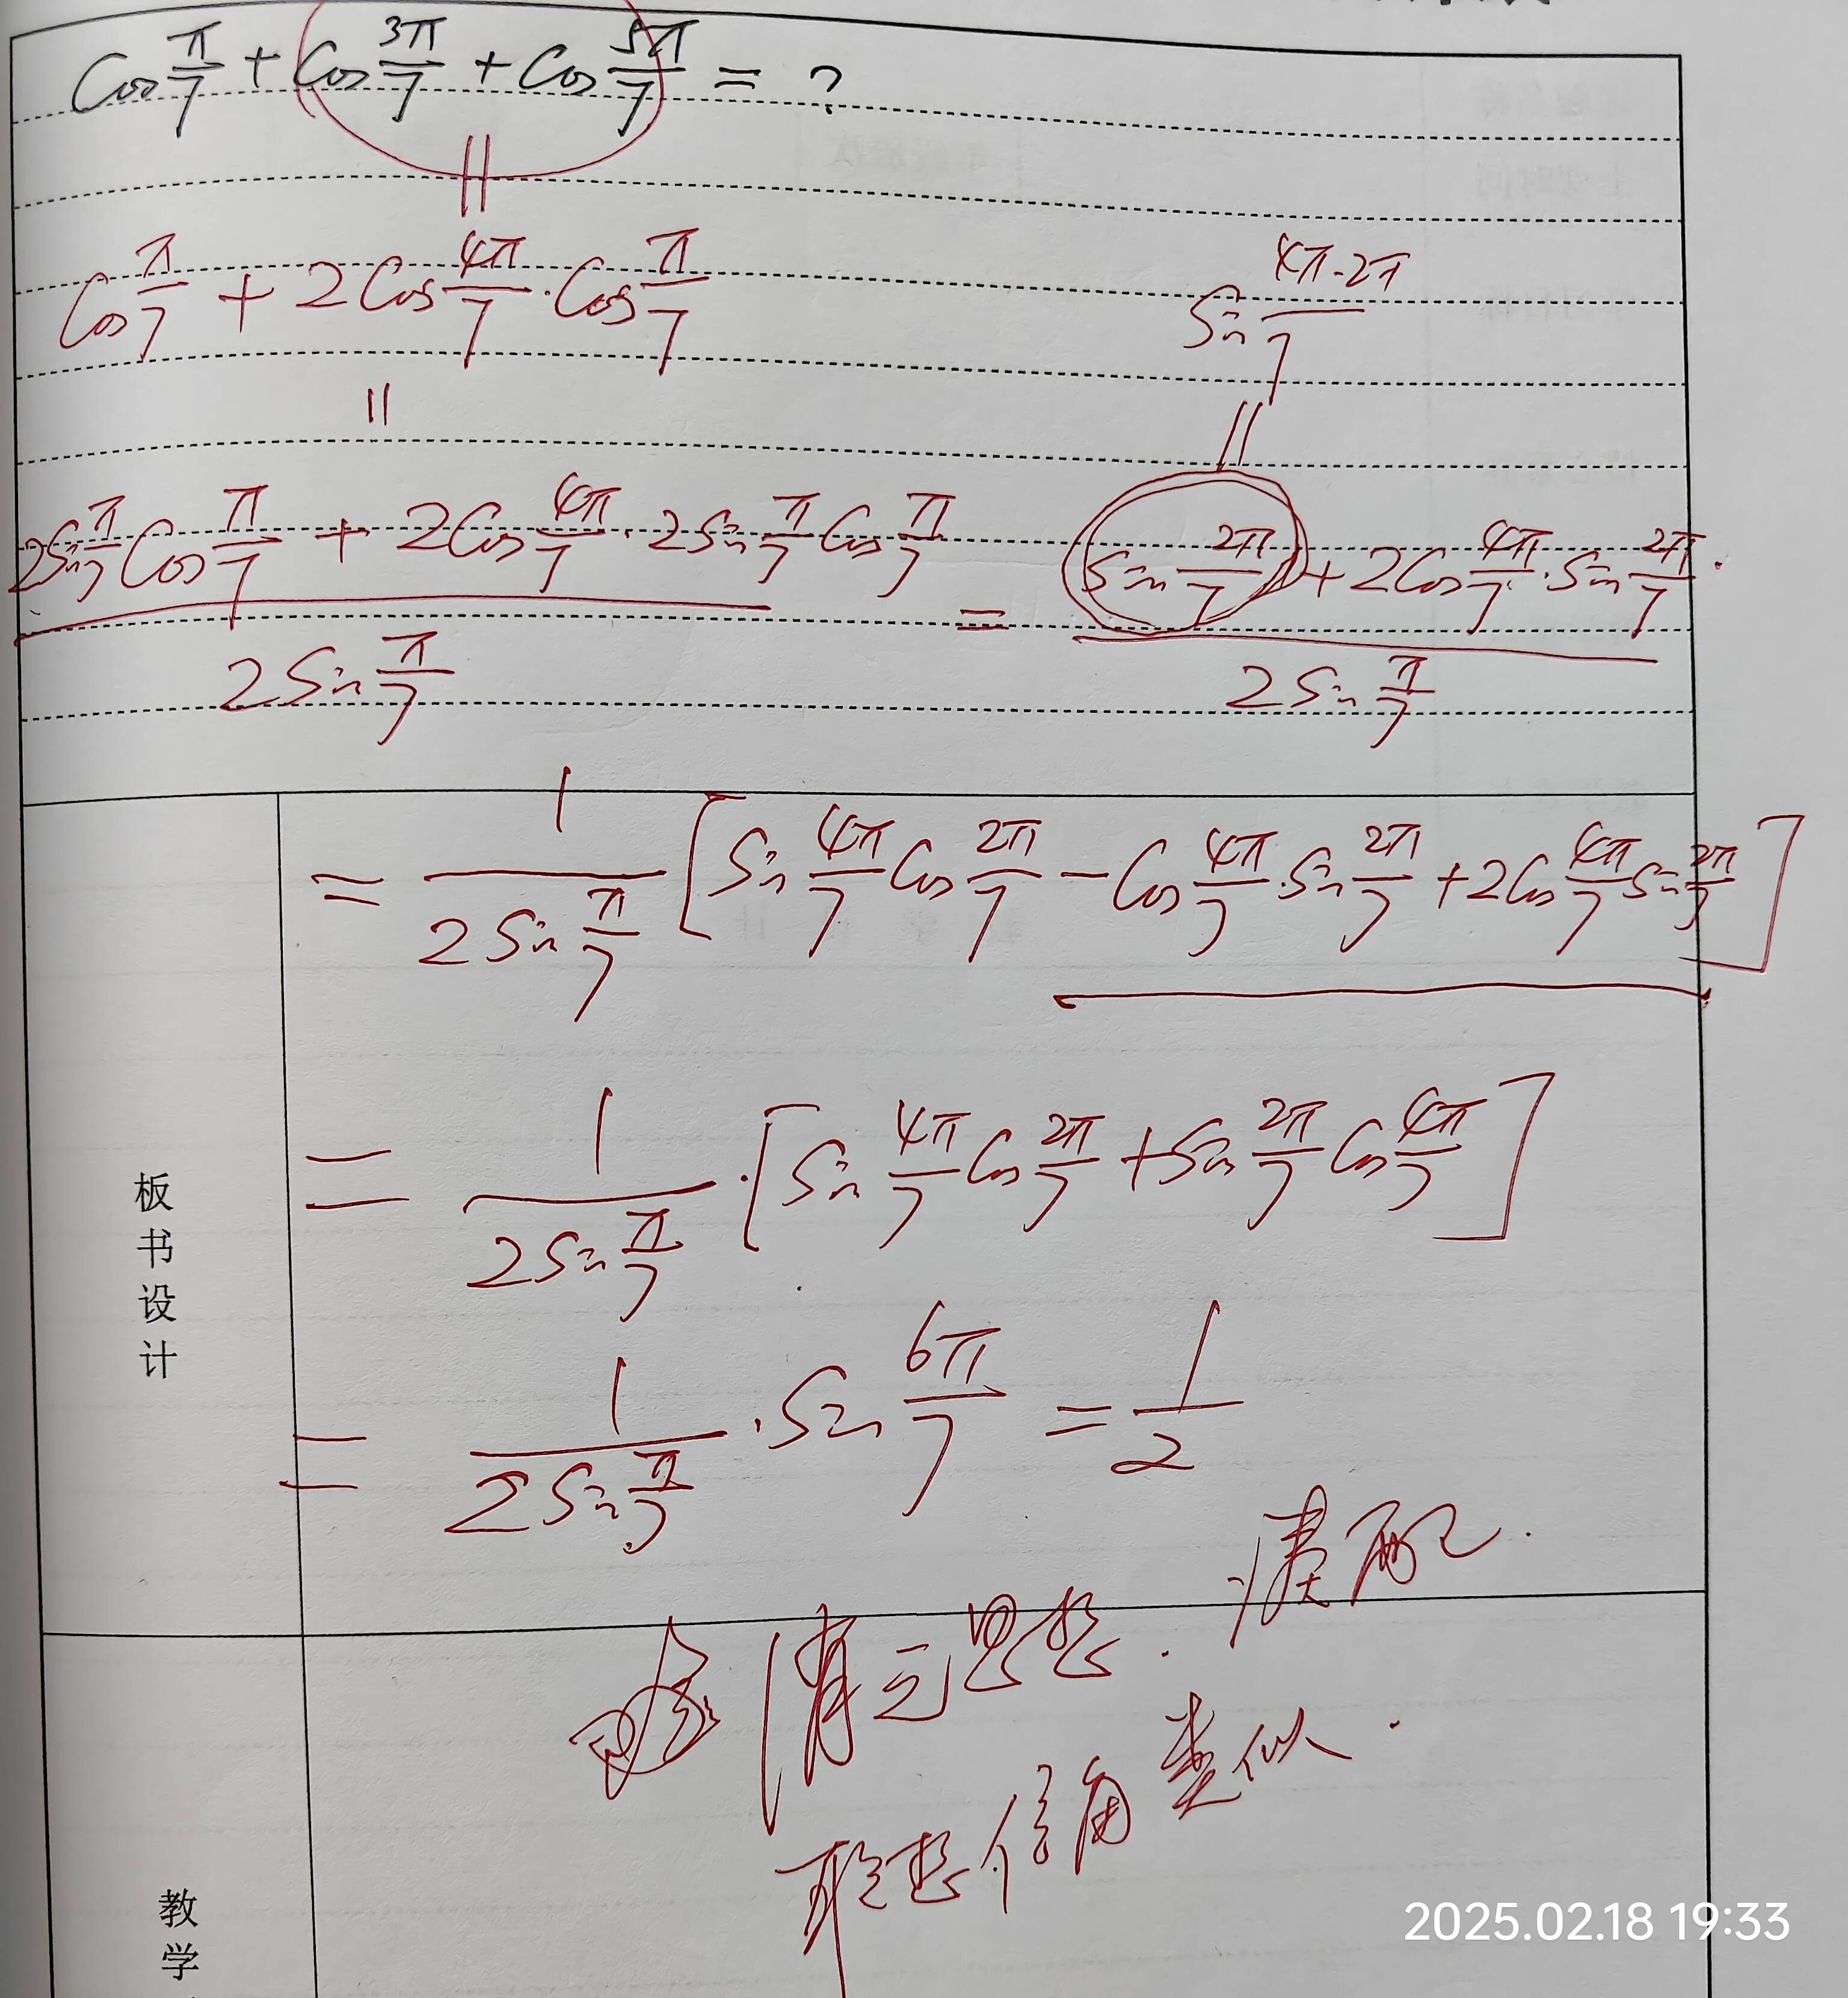 Cos π/7 + Cos 3π/7 + Cos 5π/7 = ?
||
Cos π/7 + 2Cos 4π/7 · Cos π/7
Sin (4π-2π)/7
||
||
(2Sin π/7 Cos π/7 + 2Cos 4π/7 · 2Sin π/7 Cos π/7) / (2Sin π/7) = (Sin 2π/7 + 2Cos 4π/7 · Sin 2π/7) / (2Sin π/7)
= 1/(2Sin π/7) [Sin 4π/7 Cos 2π/7 - Cos 4π/7 · Sin 2π/7 + 2Cos 4π/7 Sin 2π/7]
= 1/(2Sin π/7) · [Sin 4π/7 Cos 2π/7 + Sin 2π/7 Cos 4π/7]
= 1/(2Sin π/7) · Sin 6π/7 = 1/2
板书设计
消元思想.
联想倍角类似.
教学
2025.02.18 19:33